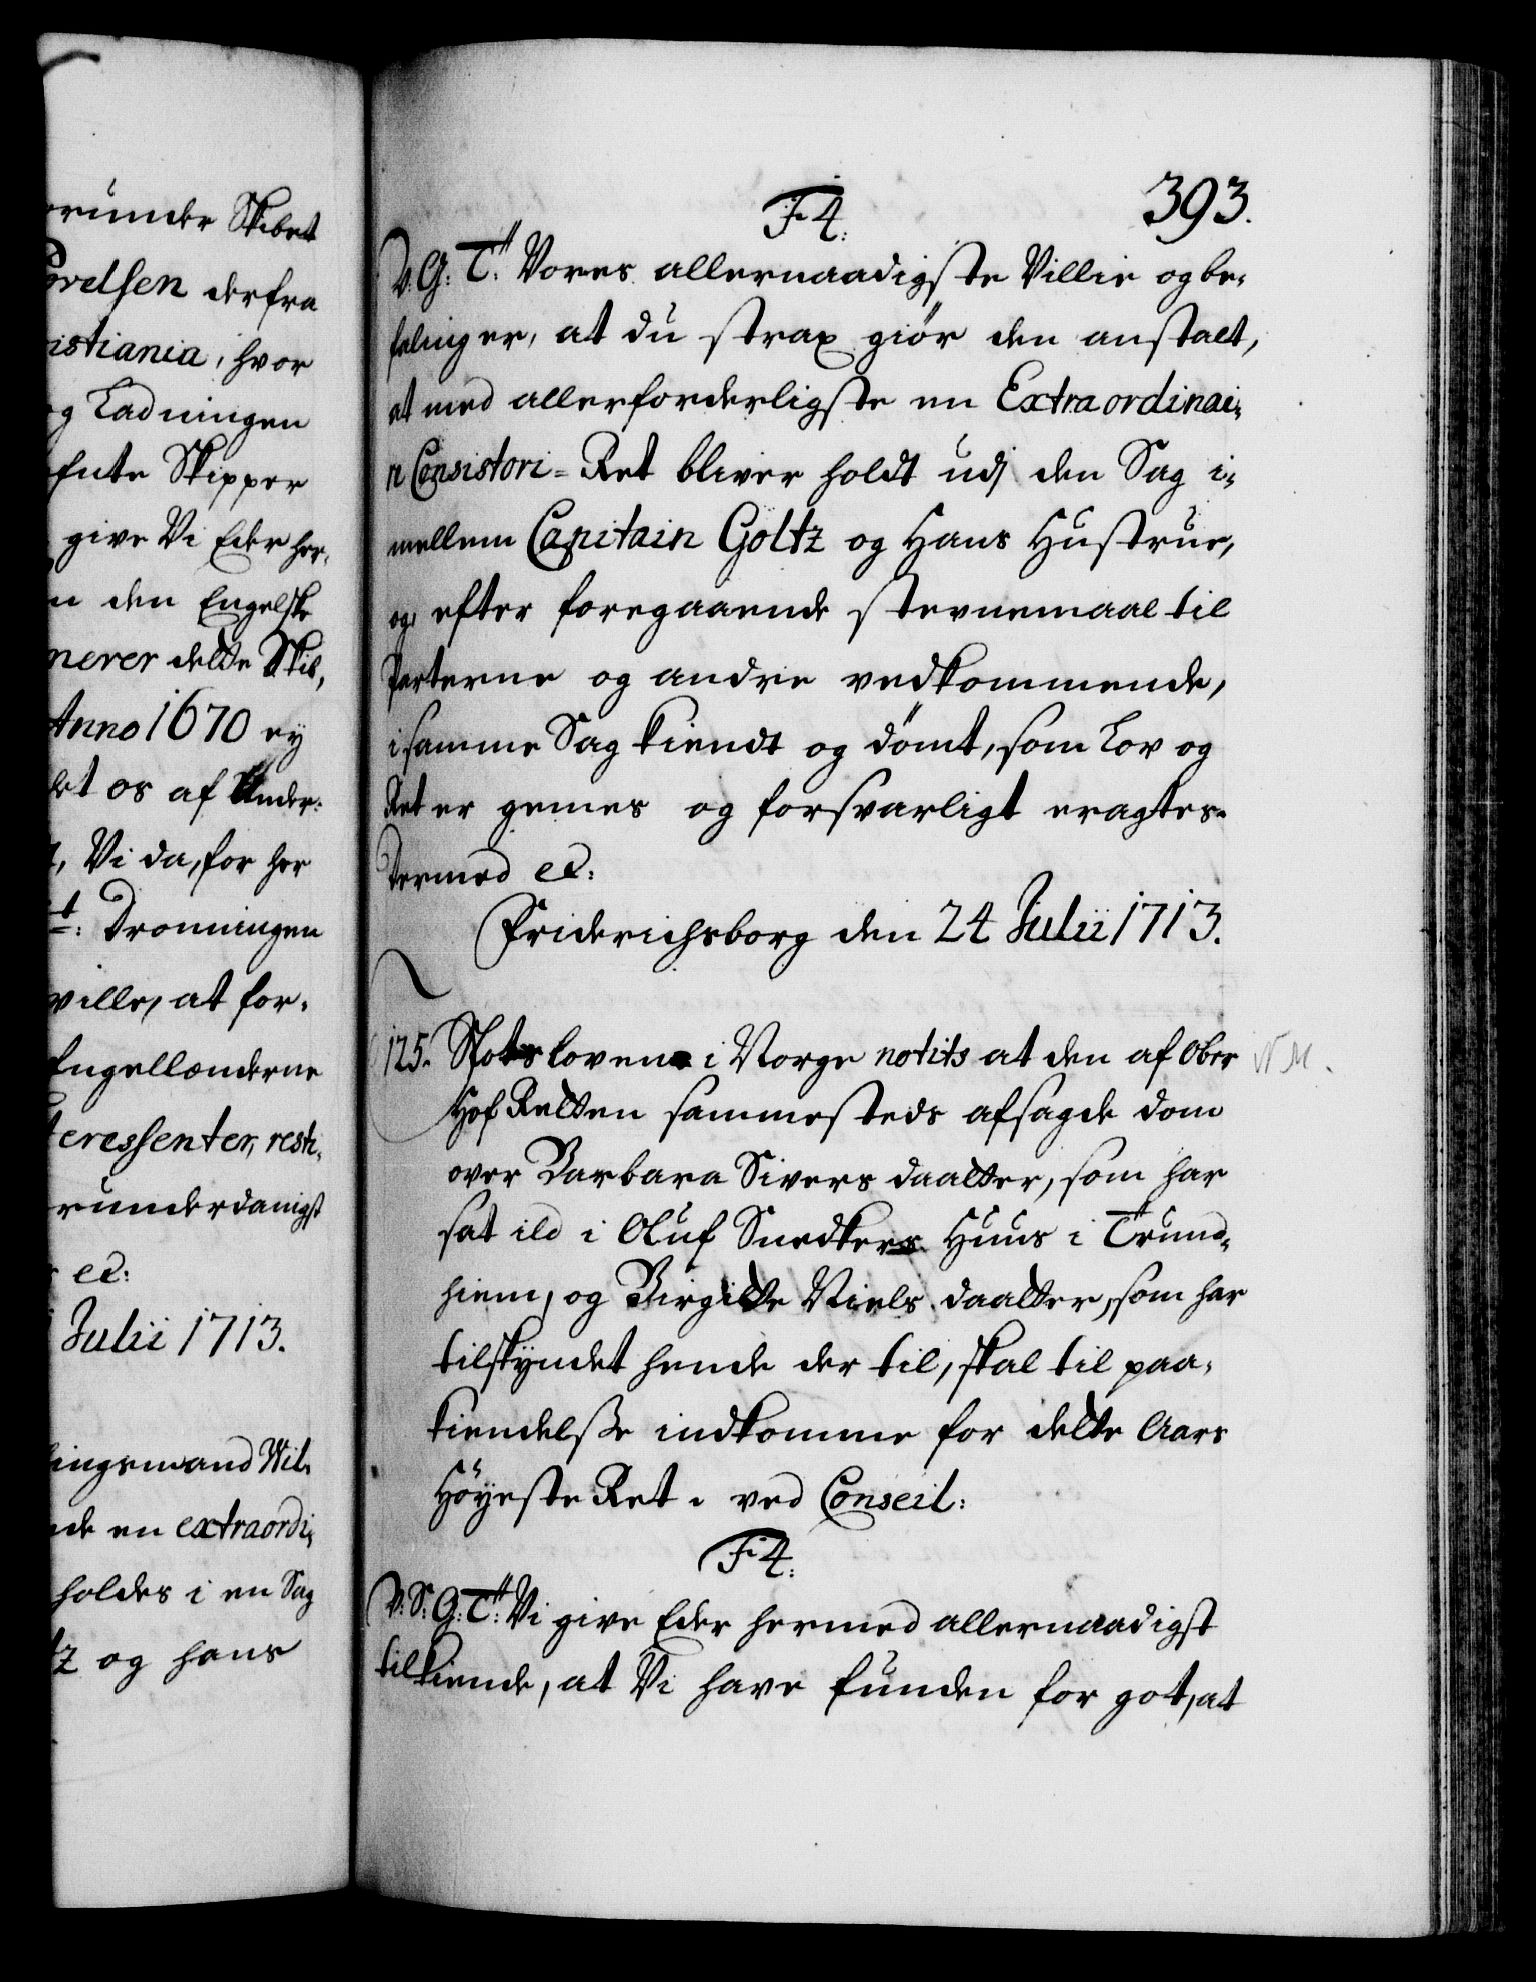 runder Skibet
relsen derfra
istiania, hvor
og Ladningen
fnte Skipper
give Vi Eder her,
n den Engelske
nerer dette Skib,
Anno 1670 ey
let os af Under:
Vi da, for her
t: Dronningen
ville, at for,
Engellænderne
teressenter, resti,
runderdanigst
ec:
Julii 1713.
ingsmand Wil,
de en extraordi,
holdes i en Sag
tz og hans
393.
F4.
V. G: T: Vores allernaadigste Villie og be,
falinger, at du strax giör den anstalt,
at med allerforderligste en Extraordinai,
r Consistori=Ret bliver holdt udj den Sag i,
mellem Capitain Goltz og Hans Hustrue,
og efter foregaaende stevnemaal til
Parterne og andre vedkommende,
i samme Sag kiendt og dömt, som Lov og
Ret er gemes og forsvarligt eragtes.
Dermed ec:
Friderichsborg den 24 Julii 1713.
125. Slotsloven i Norge notits at den af Ober
Hof Retten sammesteds afsagde dom
over Barbara Sivers daatter, som har
sat ild i Oluf Snedkers Huus i Trund,
hiem, og Birgitte Niels daatter, som har
tilskyndet hende der til, skal til paa,
kiendelsße indkomme for dette Aars
Höyeste Ret. ved Conseil:
F4.
V: S: G: T: Vi give Eder hermed allernaadigst
tilkiende, at Vi have funden for got, at